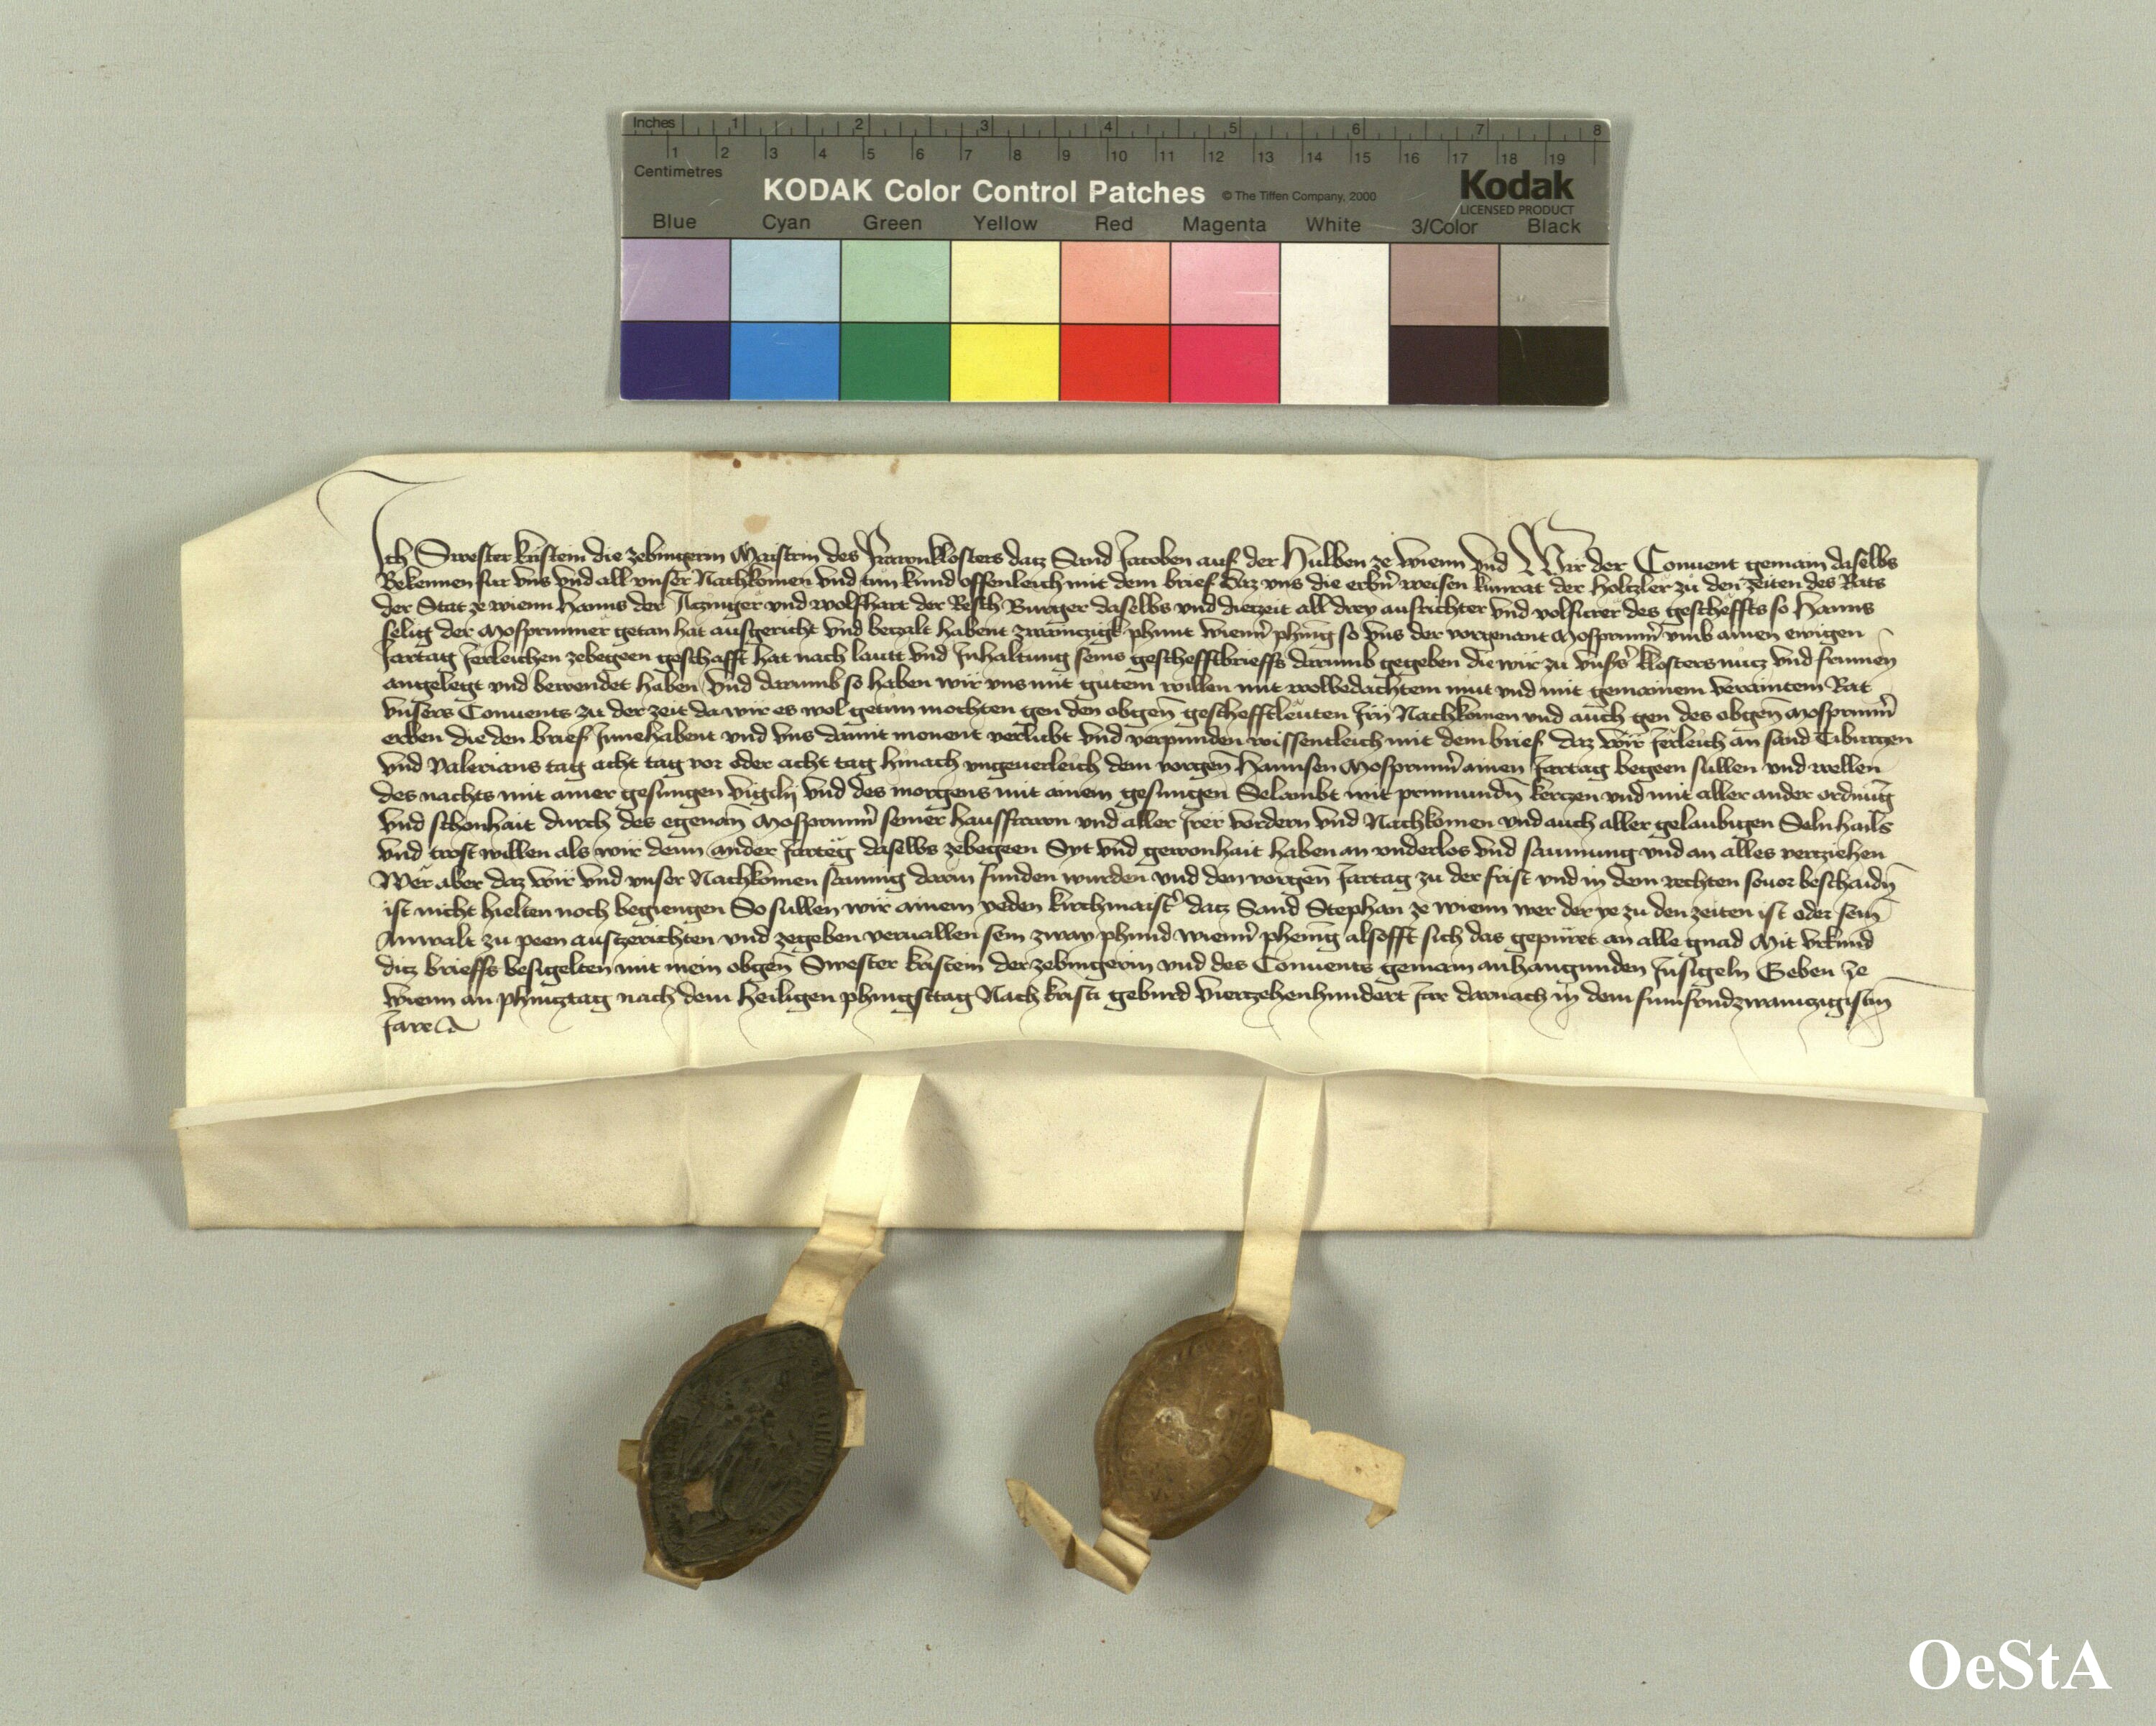 Inches 1 2 3 4 5 6 7 8
1 2 3 4 5 6 7 8 9 10 11 12 13 14 15 16 17 18 19
Centimetres
KODAK Color Control Patches © The Tiffen Company, 2000 Kodak
LICENSED PRODUCT
Blue Cyan Green Yellow Red Magenta White 3/Color Black
Ich Swester kristein die zebingerin Maistrin des Frawnklosters datz Sand Jacoben auf der Hulben ze wienn vnd Wir der Conuent gemain daselbs
Bekennen fur vns vnd all vnser Nachkomen vnd tun kund offenleich mit dem brief daz vns die erbñ weisen kunrat der holtzler zu den zeiten des Rats
der Stat ze wienn Hanns der vnd wolfhart der Resch Burger daselbs vnd dietzeit all drey ausrichter vnd volfurer des gescheffts so Hanns
selig der Mosprunner getan hat ausgericht vnd betzalt habent zwaintzigk phunt wienñ phenig so vns der vorgenant Mosprunñ vmb ainen ewigen
Jartag Jerleichen zebegeen geschafft hat nach lautt vnd Innhaltung seins gescheftbrieffs darumb gegeben die wir zu vnsʼs klosters nutz vnd frumen
angelegt vnd bewendet haben Vnd darumb so haben wir vns mit gutem willen mit wolbedachtem mut vnd mit gemainem veraintem Rat
vnsers Conuents zu der zeit da wir es wol getun mochten gen den obgeñ gescheftleuten Irñ Nachkomen vnd auch gen des obgeñ Mosprunñ
erben die den brief Innehabent vnd vns damit monent verlubt vnd verpunden wissentleich mit dem brief daz wir Jerleich an sand Tiburcen
vnd Valerians tag acht tag vor oder acht tag hinach vngeuerleich dem vorgeñ Hannsen Mosprunñ ainen Jartag begeen sullen vnd wellen
des nachts mit ainer gesungen vigilij vnd des morgens mit ainem gesungen Selambt mit prinnundñ kertzen vnd mit aller ander ordnug
vnd schonhait durch des egenañ Mosprunñ seiner hausfrawn vnd aller Irer vordern vnd Nachkomen vnd auch aller gelaubigen Seln hails
vnd trost willen als wir denn ander Jarteg daselbs zebegeen Syt vnd gewonhait haben an vnderlos vnd saumung vnd an alles vertziehen
Wer aber daz wir vnd vnser Nachkomen saumig darin funden wurden vnd den vorgeñ Jartag zu der frist vnd in dem rechten souor beschaidñ
ist nicht hielten noch begiengen So sullen wir ainem yeden kirchmaistʼ datz Sand Stephan ze wienn wer der ye zu den zeiten ist oder sein
Anwalt zu peen austzerichten vnd zegeben veruallen sein zway phund wienñ phenig alsofft sich das gepuret an alle gnad Mit vrkund
ditz brieffs besigelten mit mein obgeñ Swester kristein der zebingerin vnd des Conuents gemain anhangunden Insigeln Geben ze
wienn an phintztag nach dem heiligen phingsttag Nach kristi geburd viertzehenhundert Jar darnach in dem funfvndzwaintzigistñ
Jare
OeStA